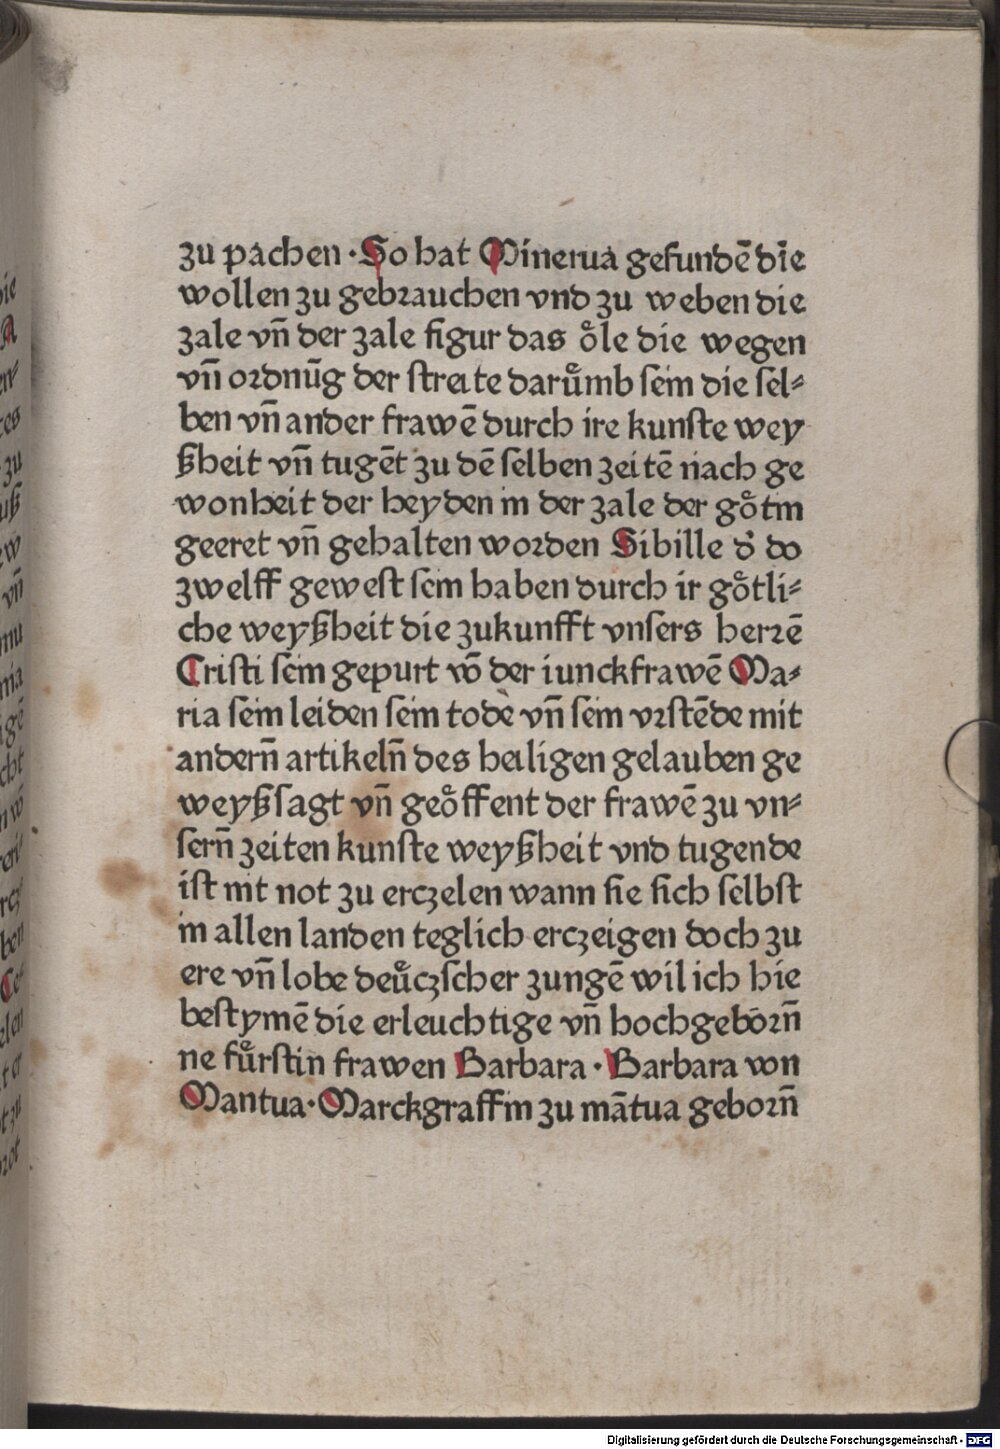 zu pachen · So hat Minerua gefundē die
wollen zu gebrauchen vnd zu weben die
zale vn̄ der zale figur das oͤle die wegen
vn̄ ordnūg der streite daruͤmb sein die sel⸗
ben vn̄ ander frawē durch ire kunste wey
ßheit vn̄ tugēt zu dē selben zeitē nach ge
wonheit der heyden in der zale der goͤtin
geeret vn̄ gehalten worden Sibille d' do
zwelff gewest sein haben durch ir goͤtli⸗
che weyßheit die zukunfft vnsers herrē
Cristi sein gepurt vō der iunckfrawē Ma⸗
ria sein leiden sein tode vn̄ sein vrstēde mit
andern̄ artikeln̄ des heiligen gelauben ge
weyßsagt vn̄ geoͤffent der frawē zu vn⸗
sern̄ zeiten kunste weyßheit vnd tugende
ist nit not zu erczelen wann sie sich selbst
in allen landen teglich erczeigen doch zu
ere vn̄ lobe deuͤczscher zungē wil ich hie
bestymē die erleuchtige vn̄ hochgeborn̄
ne fuͤrstin frawen Barbara · Barbara von
Mantua · Marckgraffin zu mātua geborn̄
Digitalisierung gefördert durch die Deutsche Forschungsgemeinschaft - DFG